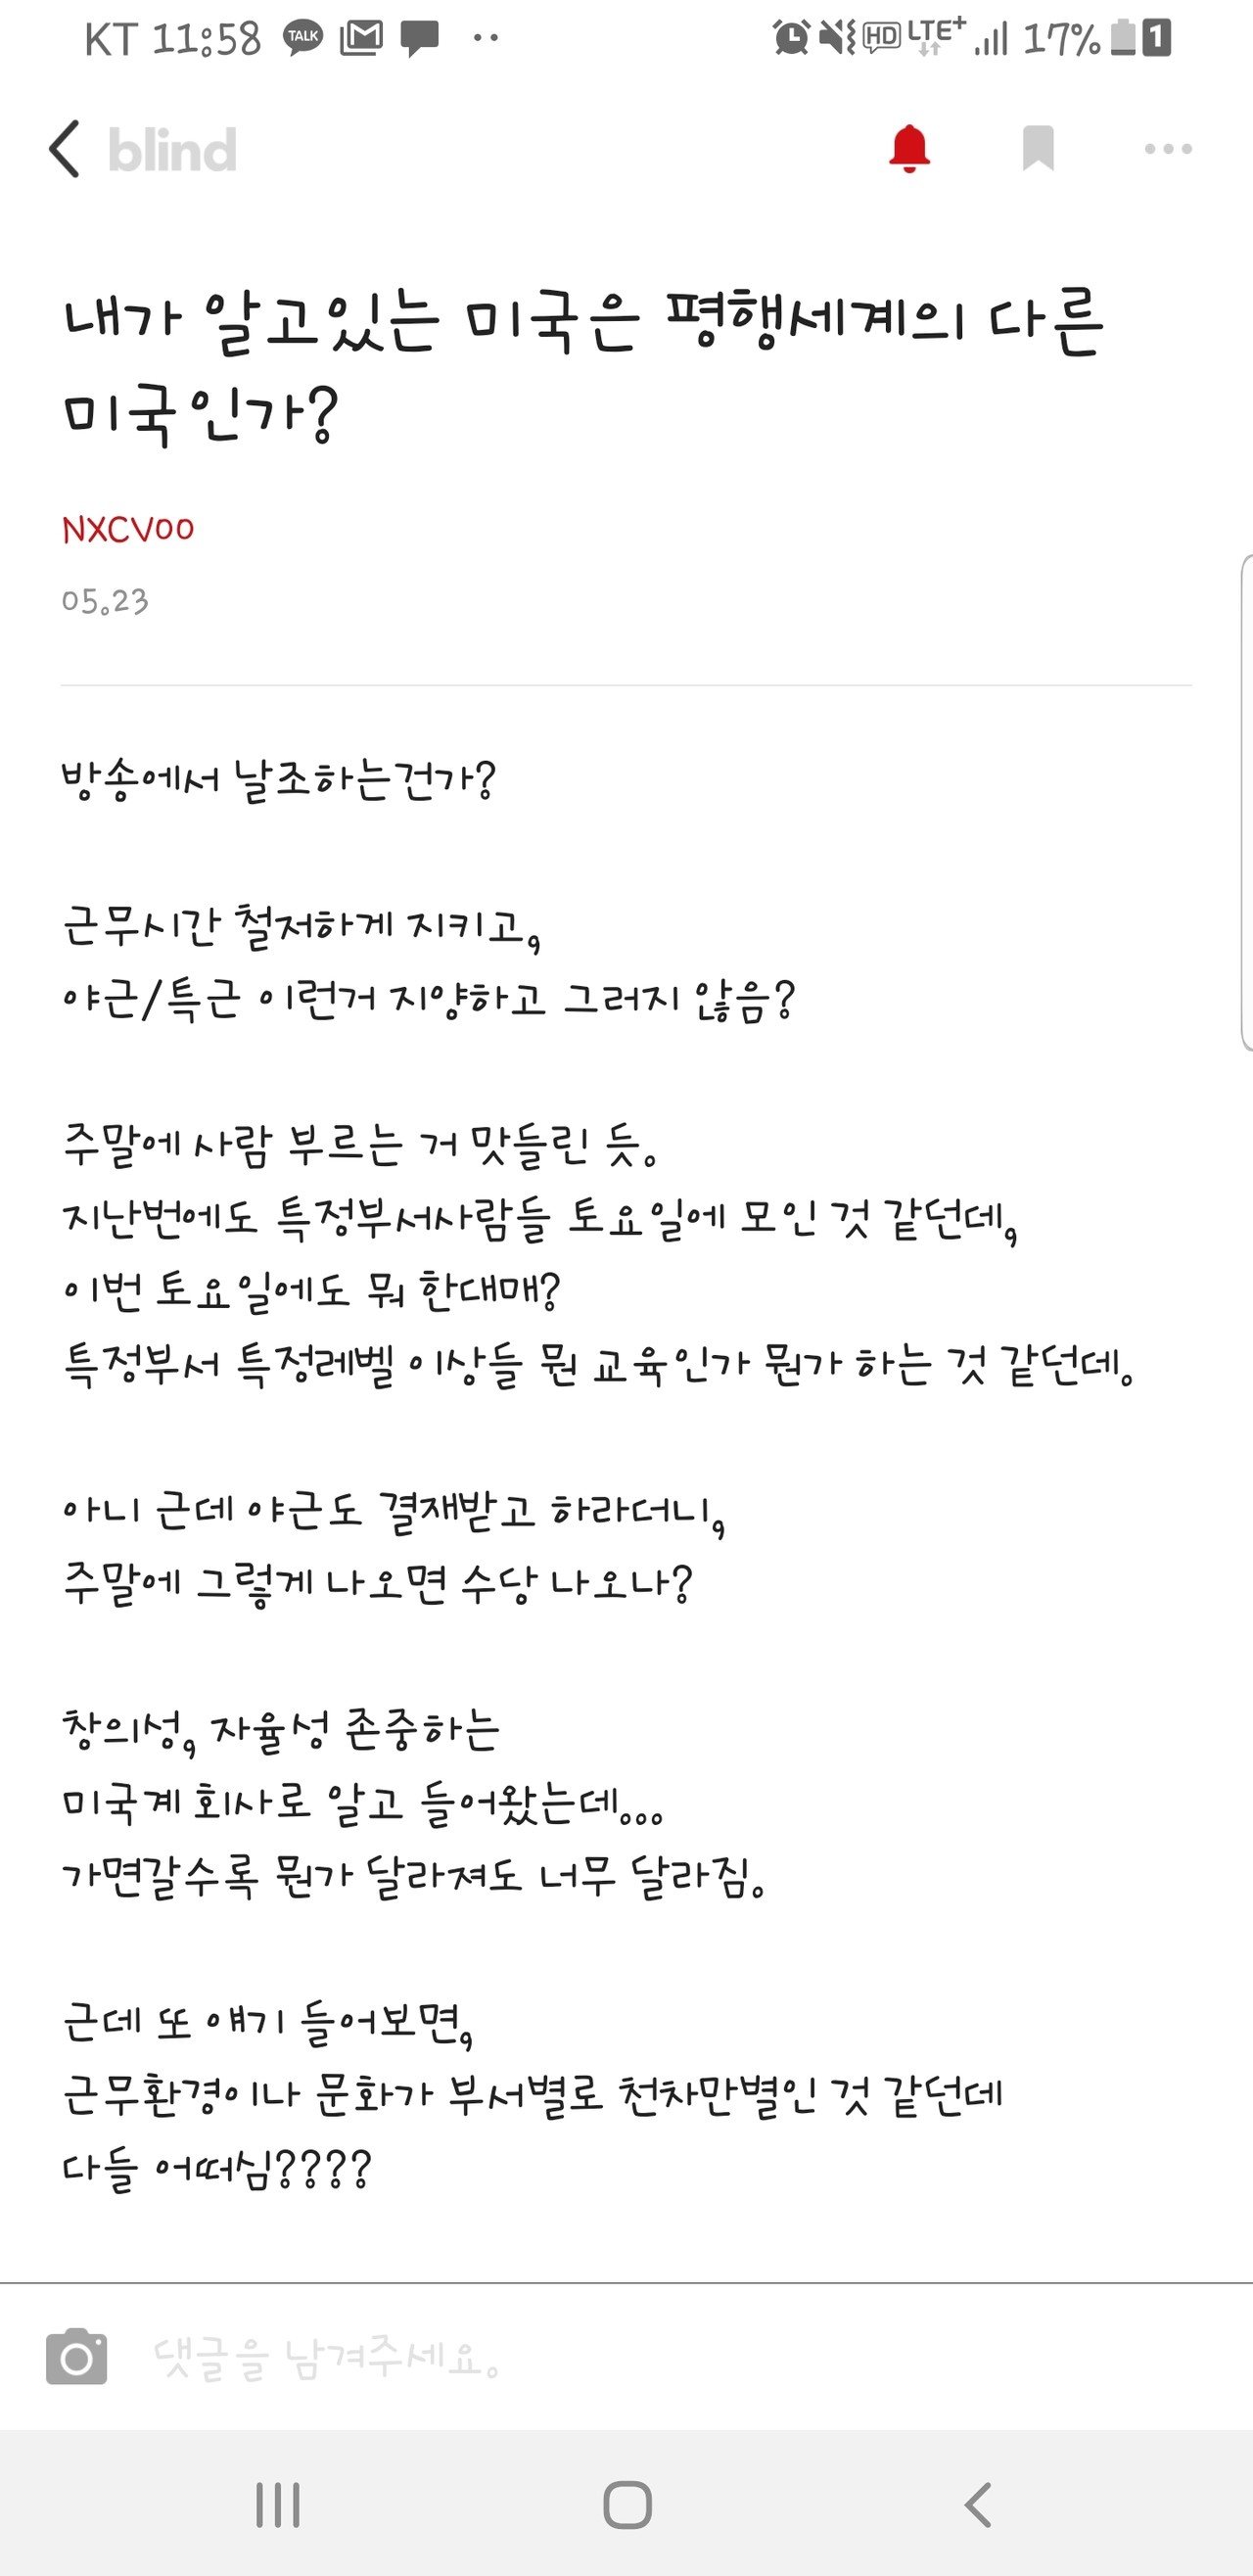 KT 11:58 TALK HD LTE+ 17% 1
blind
내가 알고있는 미국은 평행세계의 다른
미국인가?
NXCV00
05.23
방송에서 날조하는건가?
근무시간 철저하게 지키고,
야근/특근 이런거 지양하고 그러지 않음?
주말에 사람 부르는 거 맛들린 듯.
지난번에도 특정부서사람들 토요일에 모인 것 같던데,
이번 토요일에도 뭐 한대매?
특정부서 특정레벨 이상들 뭔 교육인가 뭔가 하는 것 같던데.
아니 근데 야근도 결재받고 하라더니,
주말에 그렇게 나오면 수당 나오나?
창의성, 자율성 존중하는
미국계 회사로 알고 들어왔는데...
가면갈수록 뭔가 달라져도 너무 달라짐.
근데 또 얘기 들어보면,
근무환경이나 문화가 부서별로 천차만별인 것 같던데
다들 어떠심????
댓글을 남겨주세요.